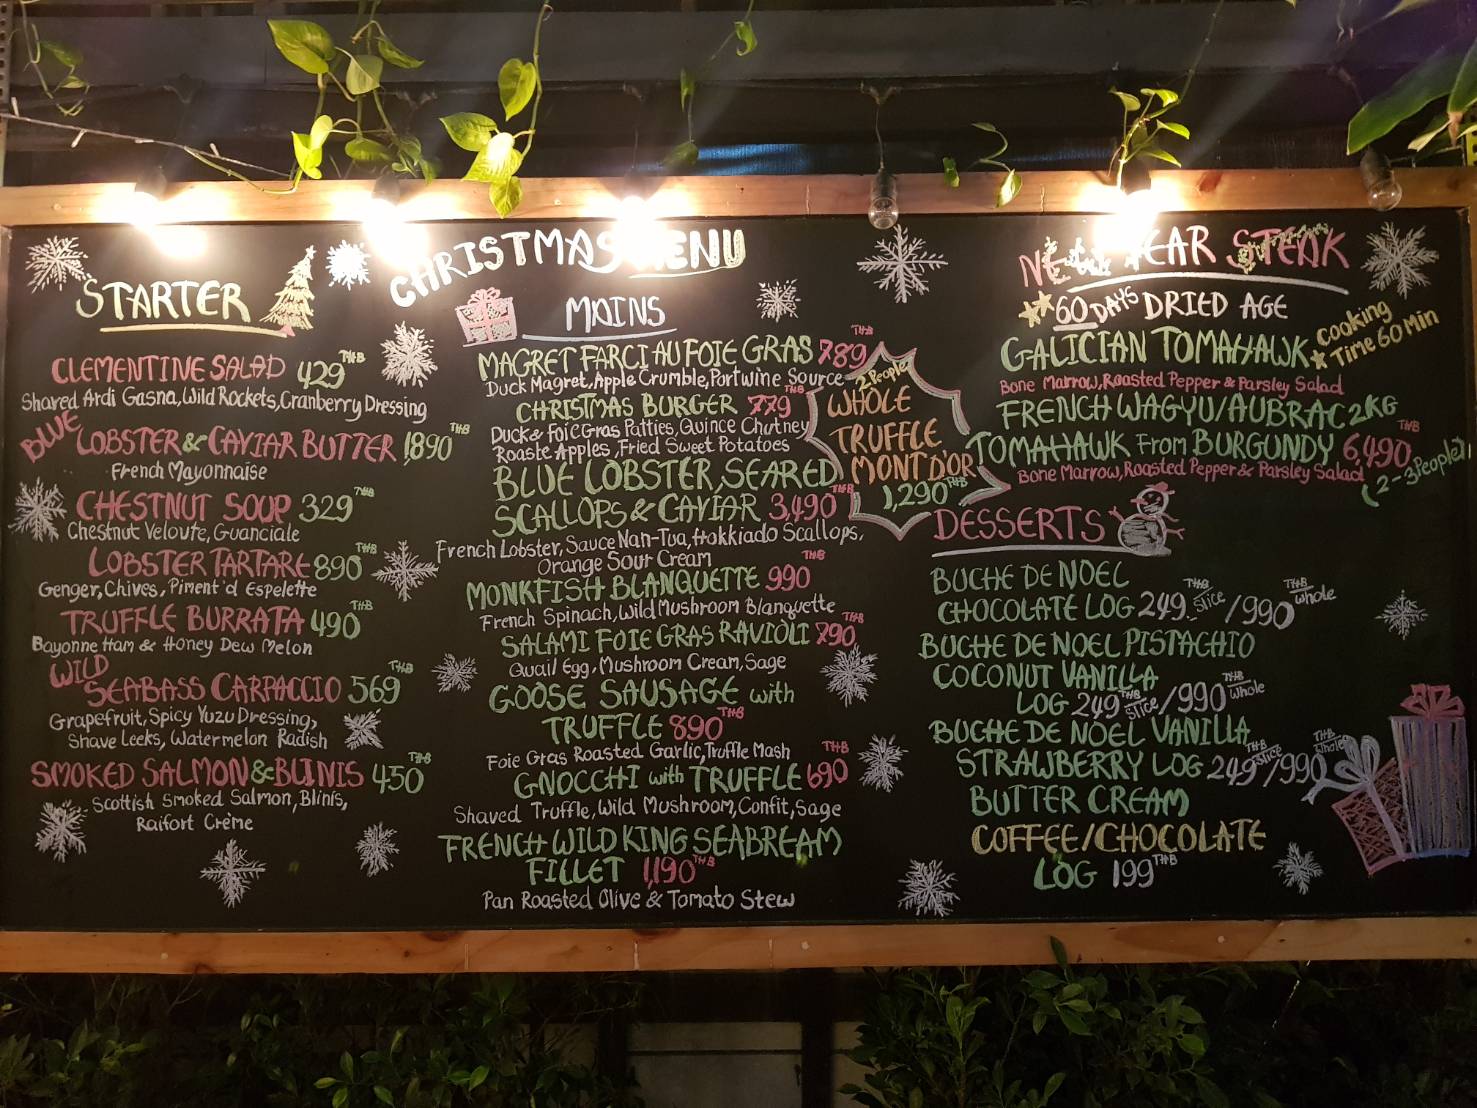 CHRISTMAS MENU
STARTER
CLEMENTINE SALAD 429 THB
Shared Ardi Gasna, Wild Rockets, Cranberry Dressing
BLUE LOBSTER & CAVIAR BUTTER 1,890 THB
French Mayonnaise
CHESTNUT SOUP 329 THB
Chestnut Veloute, Guanciale
LOBSTER TARTARE 890 THB
Genger, Chives, Piment'd Espelette
TRUFFLE BURRATA 490 THB
Bayonne Ham & Honey Dew Melon
WILD
SEABASS CARPACCIO 569 THB
Grapefruit, Spicy Yuzu Dressing,
Shave Leeks, Watermelon Radish
SMOKED SALMON & BLINIS 450 THB
Scottish Smoked Salmon, Blinis,
Raifort Crème
MAINS
MAGRET FARCI AU FOIE GRAS 789 THB
Duck Magret, Apple Crumble, Portwine Source
CHRISTMAS BURGER 779 THB
Duck & foie Gras Patties, Quince Chutney
Roaste Apples, Fried Sweet Potatoes
BLUE LOBSTER, SEARED
SCALLOPS & CAVIAR 3,490 THB
French Lobster, Sauce Nan-Tua, Hokkiado Scallops,
Orange Sour Cream
MONKFISH BLANQUETTE 990 THB
French Spinach, Wild Mushroom Blanquette
SALAMI FOIE GRAS RAVIOLI 790 THB
Quail Egg, Mushroom Cream, Sage
GOOSE SAUSAGE with
TRUFFLE 890 THB
Foie Gras Roasted Garlic, Truffle Mash
GNOCCHI with TRUFFLE 690 THB
Shaved Truffle, Wild Mushroom, Confit, Sage
FRENCH WILD KING SEABREAM
FILLET 1,190 THB
Pan Roasted Olive & Tomato Stew
2 People
WHOLE
TRUFFLE
MONT D'OR
1,290 THB
NEW YEAR STEAK
60 DAYS DRIED AGE
GALICIAN TOMAHAWK
Cooking
Time 60 Min
Bone Marrow, Roasted Pepper & Parsley Salad
FRENCH WAGYU/AUBRAC 2KG
TOMAHAWK From BURGUNDY 6,490 THB
Bone Marrow, Roasted Pepper & Parsley Salad
(2-3 People)
DESSERTS
BUCHE DE NOEL
CHOCOLATE LOG 249 THB slice /990 THB whole
BUCHE DE NOEL PISTACHIO
COCONUT VANILLA
LOG 249 THB slice /990 THB whole
BUCHE DE NOEL VANILLA
STRAWBERRY LOG 249 THB slice /990 THB whole
BUTTER CREAM
COFFEE/CHOCOLATE
LOG 199 THB